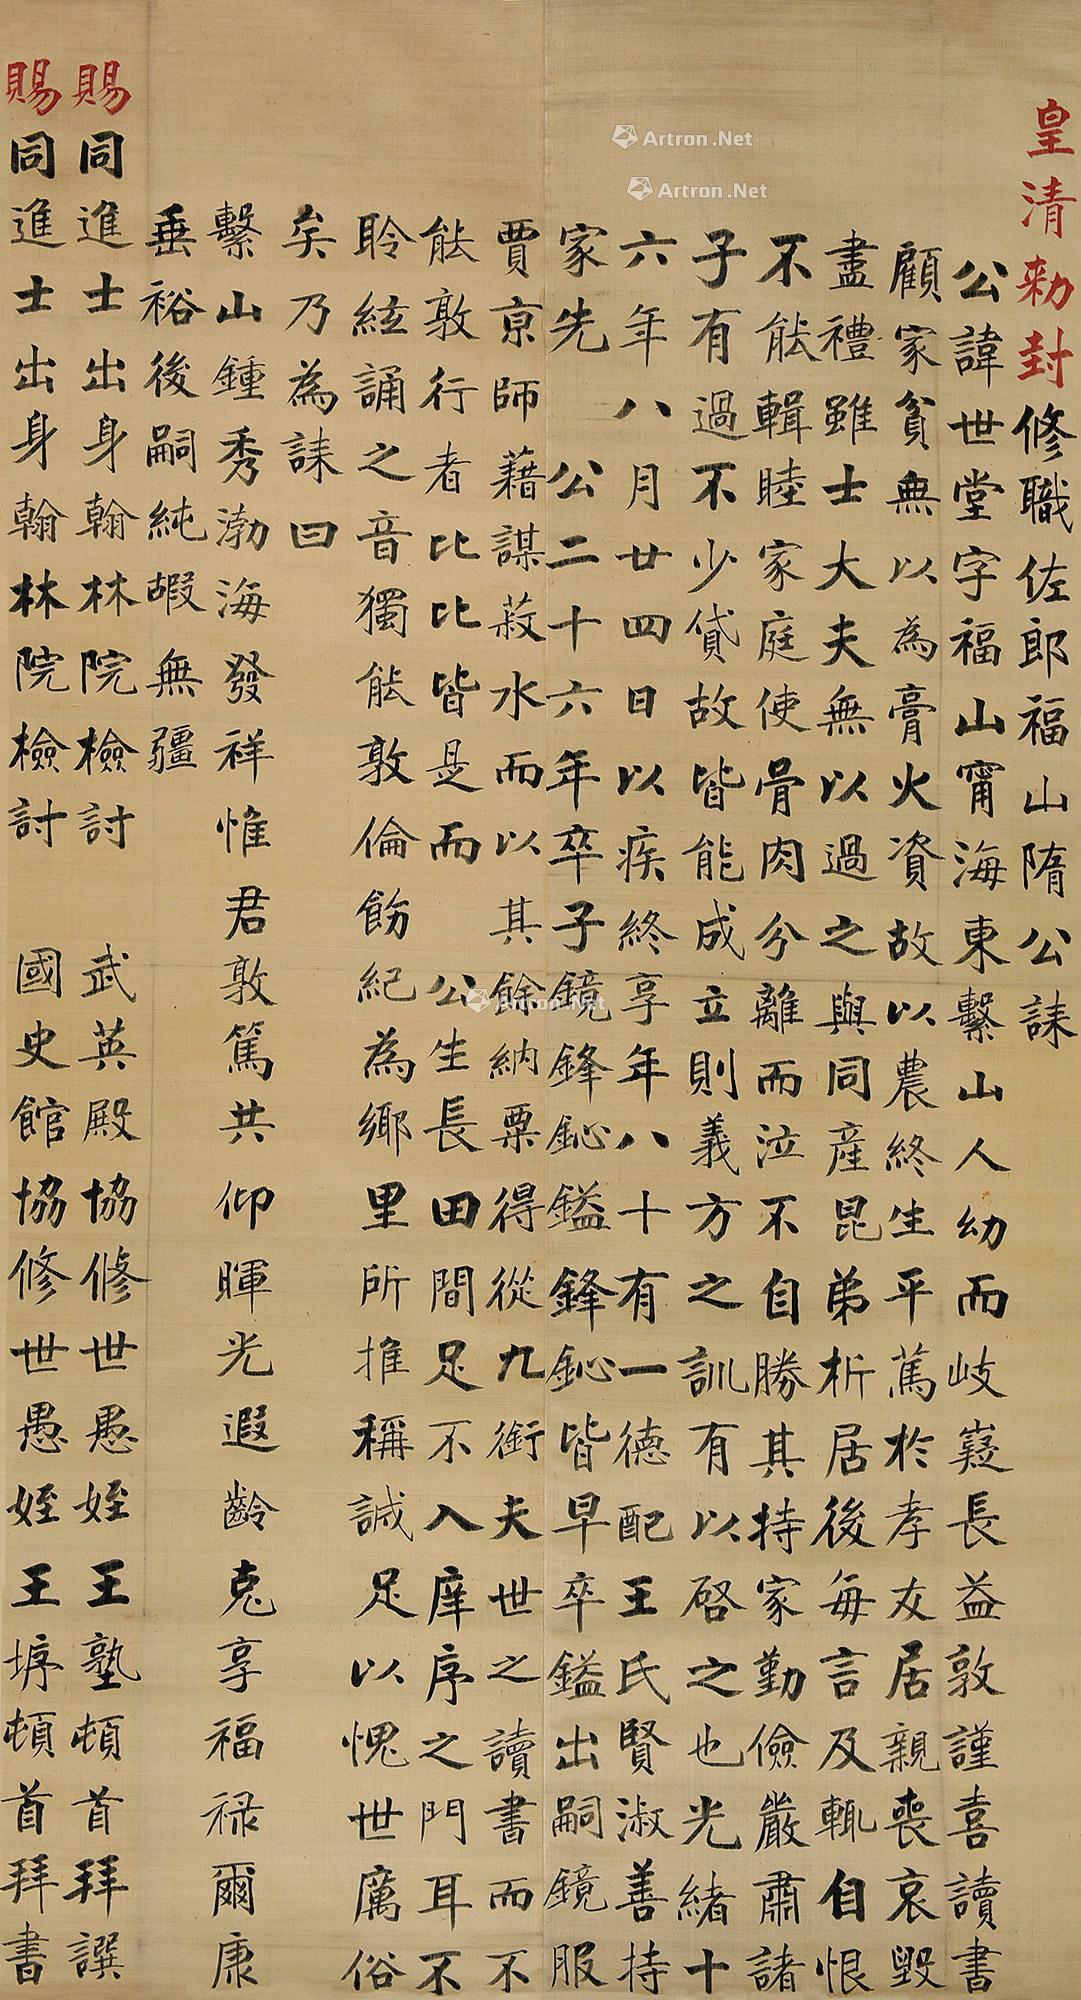 皇清勑封修職佐郎福山隋公誄
公諱世堂字福山甯海東繫山人幼而岐嶷長益敦謹喜讀書
顧家貧無以為膏火資故以農終生平篤於孝友居親喪哀毀
盡禮雖士大夫無以過之與同產昆弟析居後每言及輒自恨
不能輯睦家庭使骨肉分離而泣不自勝其持家勤儉嚴肅諸
子有過不少貸故皆能成立則義方之訓有以啓之也光緒十
六年八月廿四日以疾終享年八十有一德配王氏賢淑善持
家先公二十六年卒子鏡鋒鈊鎰鋒鈊皆早卒鎰出嗣鏡服
賈京師藉謀菽水而以其餘納粟得從九銜夫世之讀書而不
能敦行者比比皆是而公生長田間足不入庠序之門耳不
聆絃誦之音獨能敦倫飭紀為鄉里所推稱誠足以愧世厲俗
矣乃為誄曰
繫山鍾秀渤海發祥惟君敦篤共仰暉光遐齡克享福祿爾康
垂裕後嗣純嘏無疆
賜同進士出身翰林院檢討武英殿協修世愚姪王塾頓首拜譔
賜同進士出身翰林院檢討國史館協修世愚姪王垿頓首拜書
Artron.Net
Artron.Net
Artron.Net